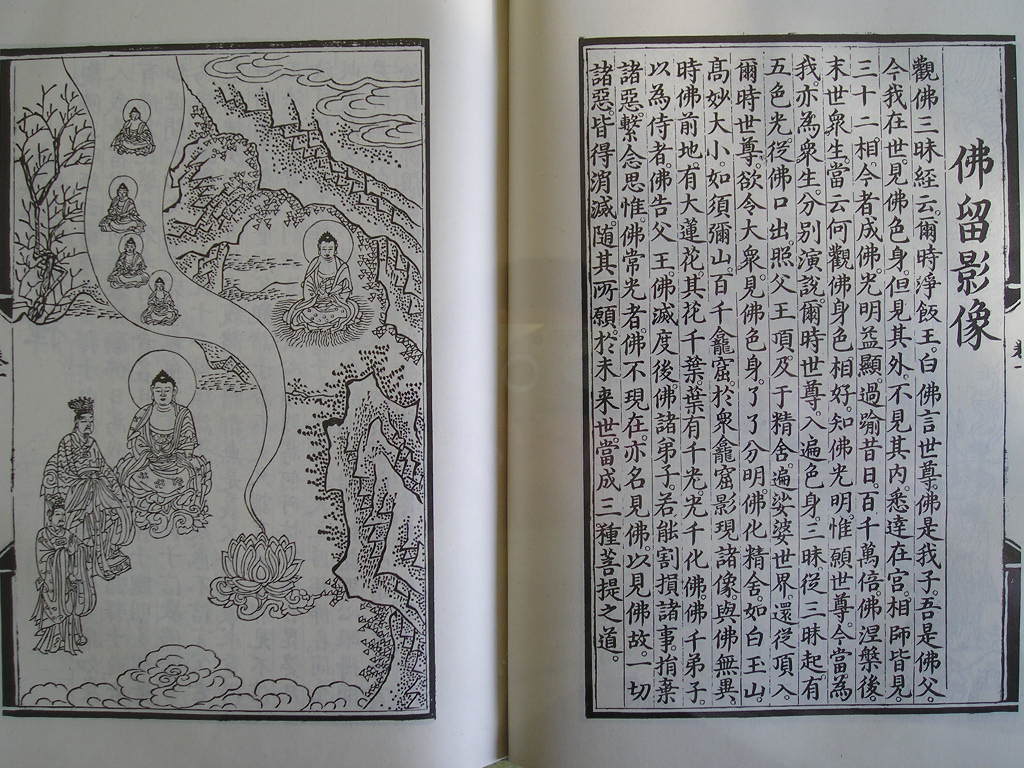 佛留影像
觀佛三昧經云。爾時淨飯王。白佛言世尊。佛是我子。吾是佛父。
今我在世。見佛色身。但見其外。不見其內。悉達在宮。相師皆見。
三十二相。今者成佛。光明益顯過踰昔日。百千萬倍。佛涅槃後。
末世衆生。當云何觀佛身色相好。知佛光明惟願世尊。今當為
我。亦為衆生。分別演說。爾時世尊。入遍色身。三昧從三昧起。有
五色光。從佛口出。照父王頂。及于精舍。遍娑婆世界。還從頂入
爾時世尊。欲令大衆。見佛色身。了了分明。佛化精舍。如白玉山。
高妙大小。如須彌山。百千龕窟。於衆龕窟影現諸像。與佛無異。
時佛前地。有大蓮花。其花千葉葉有千光。光千化佛。佛千弟子。
以為侍者。佛告父王。佛滅度後佛諸弟子。若能割損諸事。捐棄
諸惡。繫念思惟。佛常光者。佛不現在。亦名見佛。以見佛故。一切
諸惡。皆得消滅。隨其所願。於未来世。當成三種菩提之道。
卷一